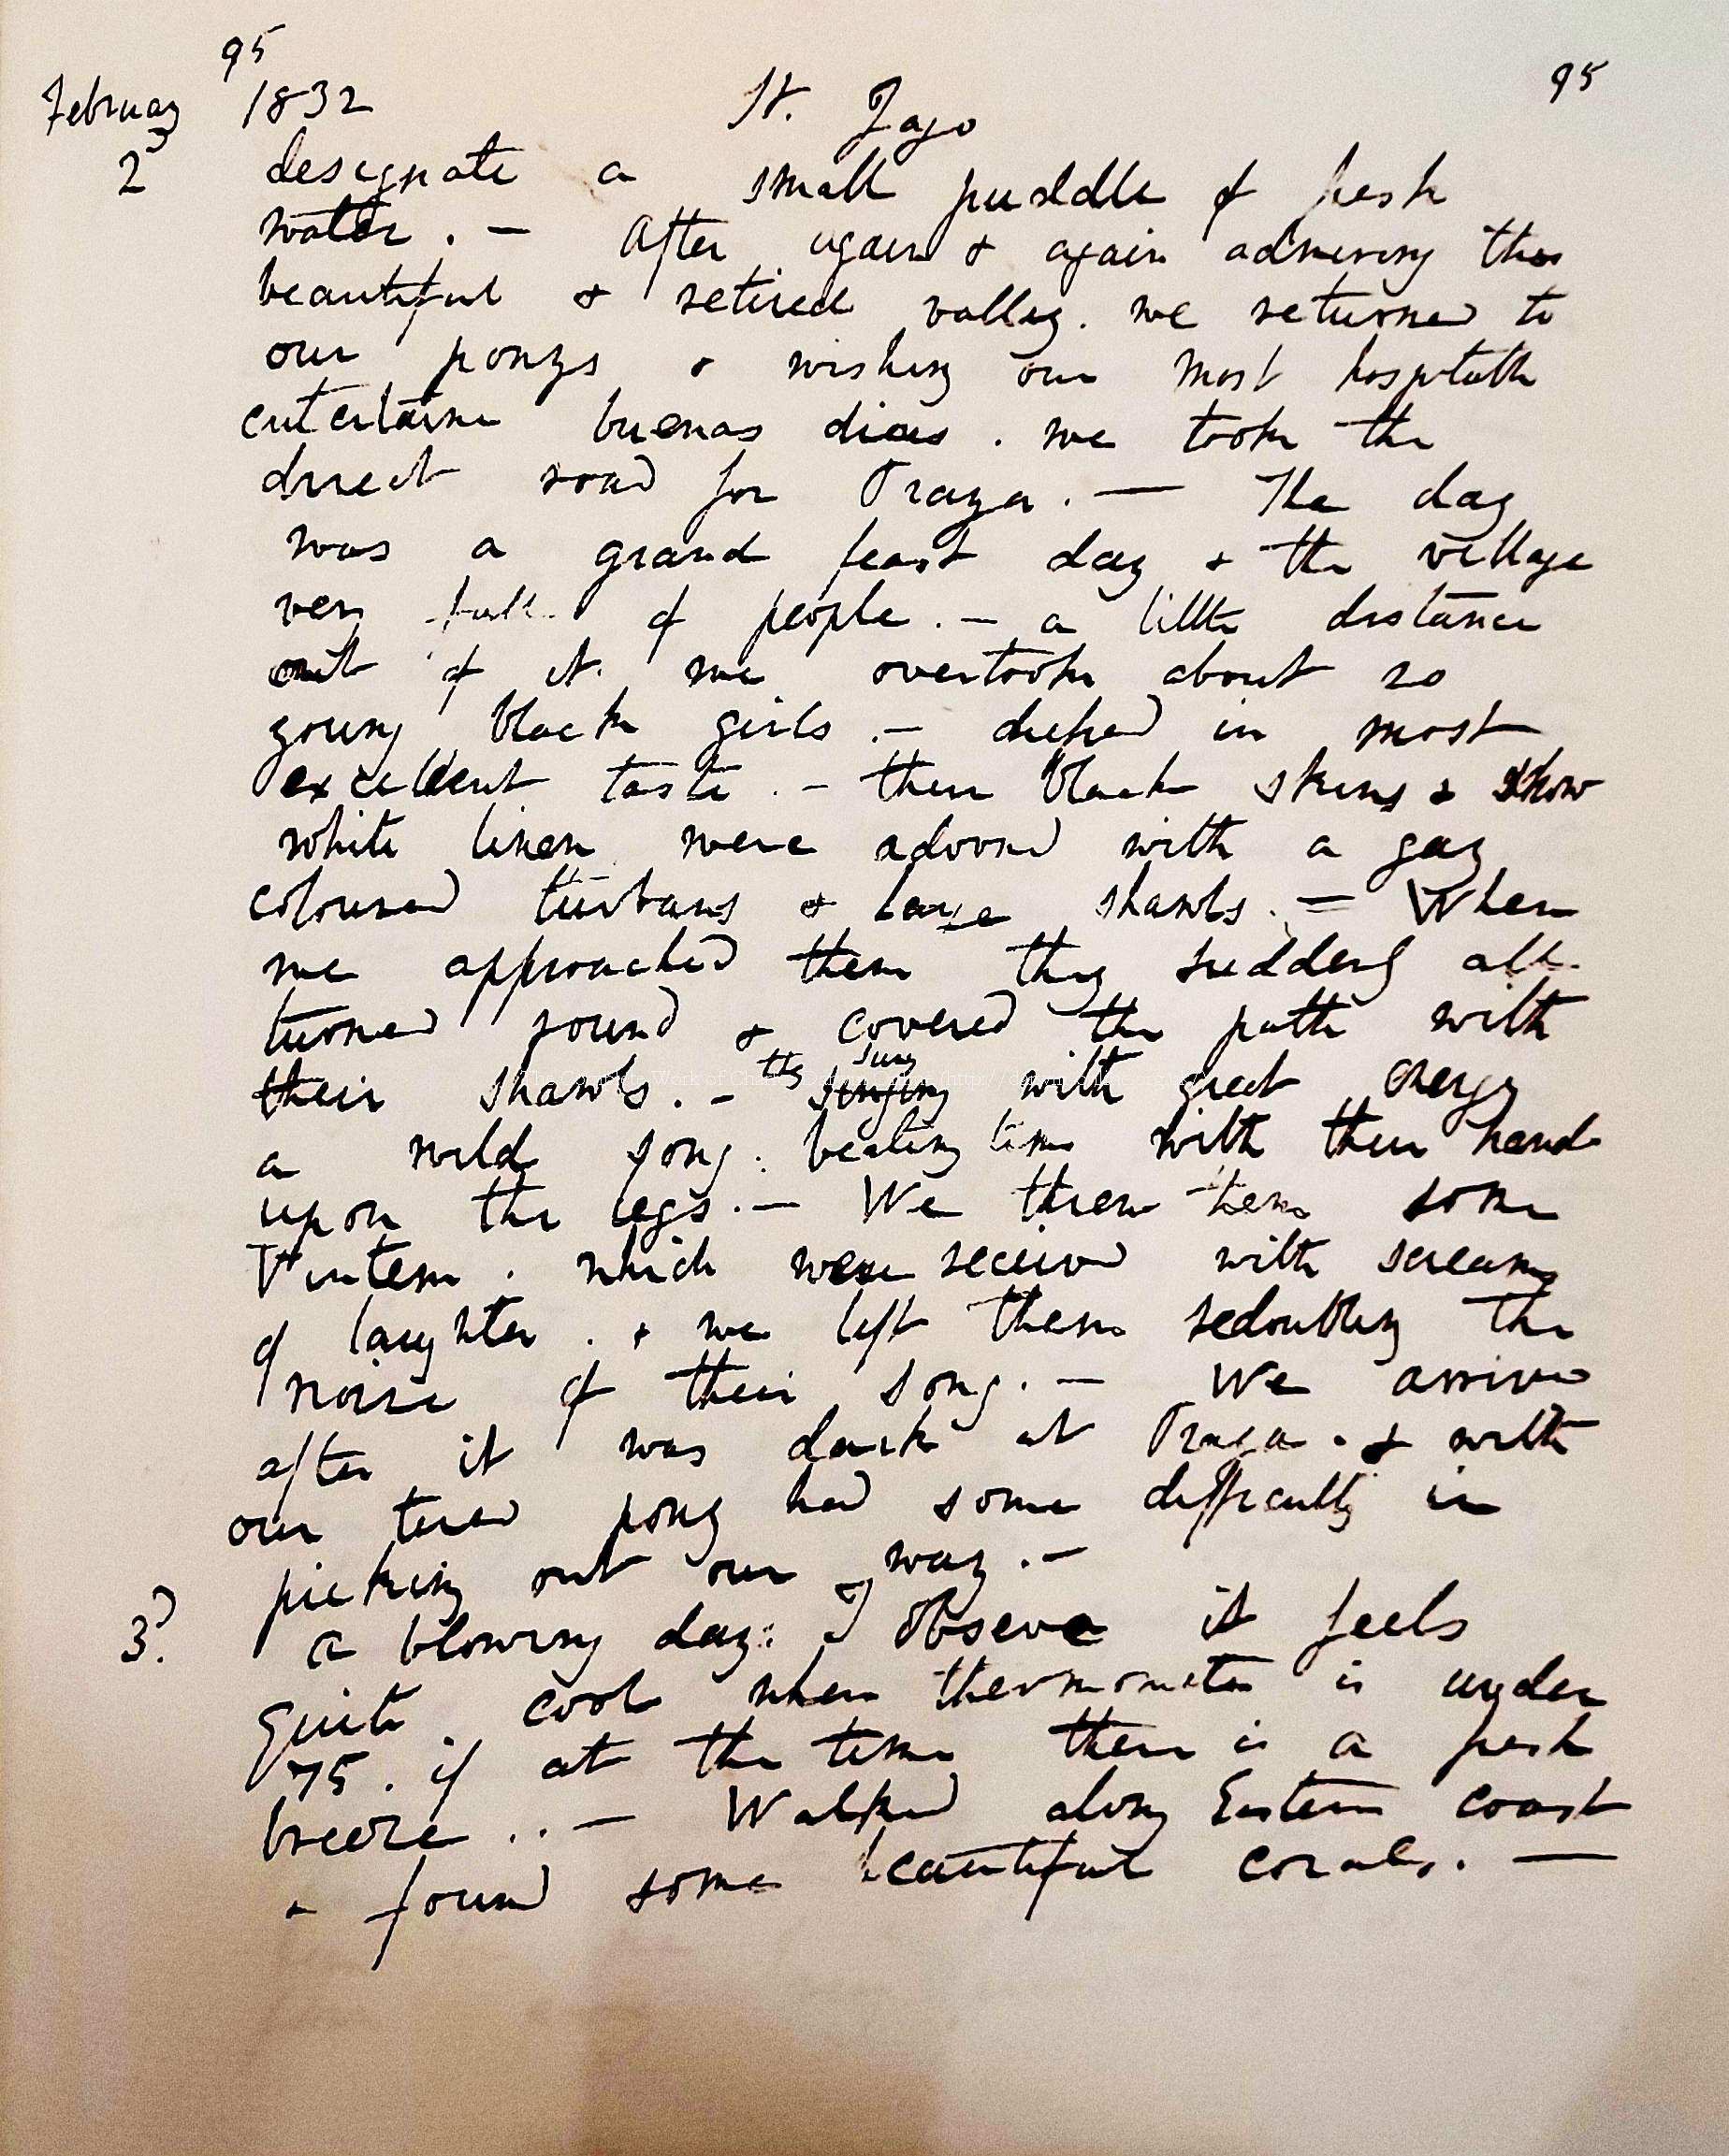 95
February 1832 St. Jago 95
2d designate a small puddle of fresh
water. — After again & again admiring this
beautiful & retired valley. we returned to
our ponys & wishing our most hospitable
entertainer buenos dias. we took the
direct road for Praya. — The day
was a grand feast day & the village
very full of people. — a little distance
out of it. we overtook about 20
young black girls. — dressed in most
excellent taste. — their black skins & snow
white linen were adorned with a gay
coloured turbans & large shawls. — When
we approached them they suddenly all
turned round & covered the path with
they sung
their shawls. — singing with great energy
a wild song: beating time with their hands
upon the legs. — We threw them some
Vintem. which were received with screams
of laughter. & we left them redoubling the
noise of their song. — We arrived
after it was dark at Praya. & with
our tired pony had some difficulty in
picking out our way. —
3d. A blowing day: I observe it feels
quite cool when thermometer is under
75. if at the time there is a fresh
breeze.. — Walked along Eastern coast
& found some beautiful corals. —